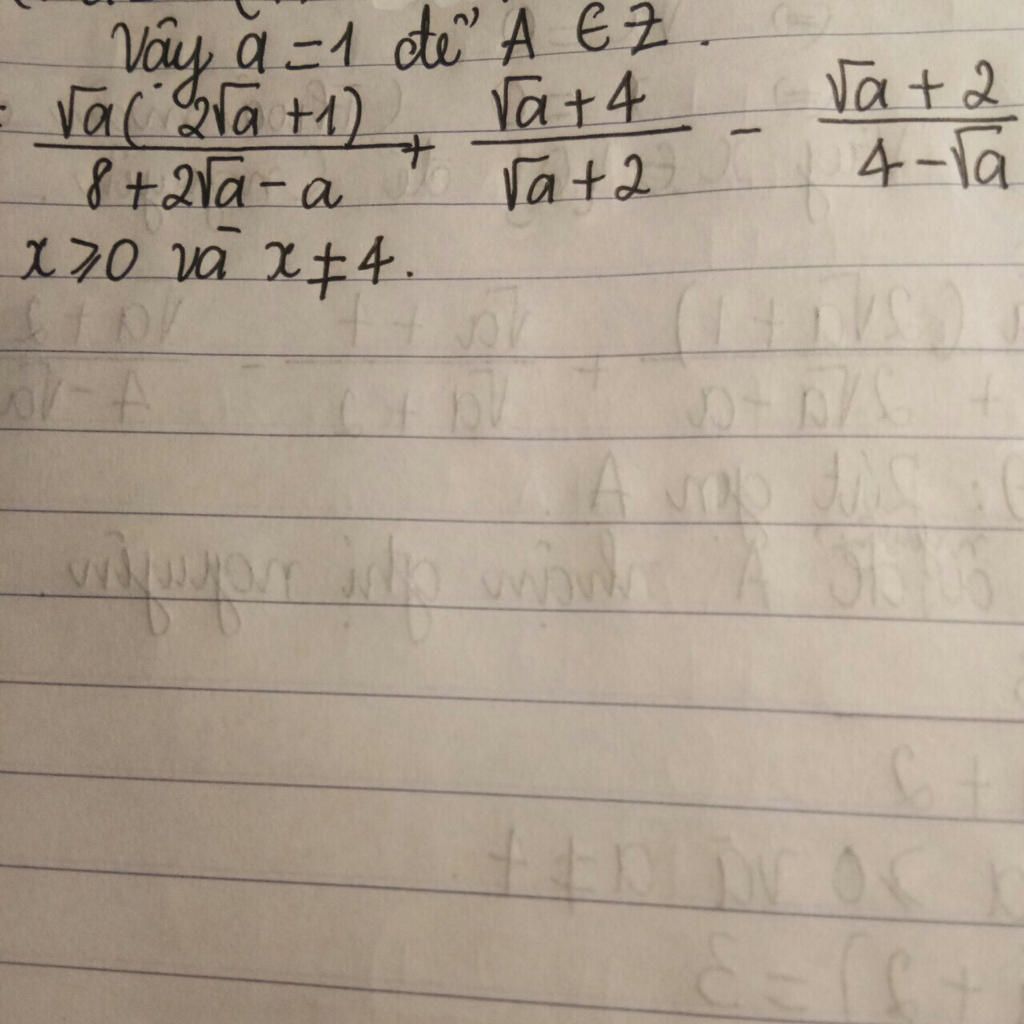 Vây a = 1 để A ∈ Z.
: √a(2√a + 1)/(8 + 2√a - a) + (√a + 4)/(√a + 2) - (√a + 2)/(4 - √a)
x ⩾ 0 và x ≠ 4.